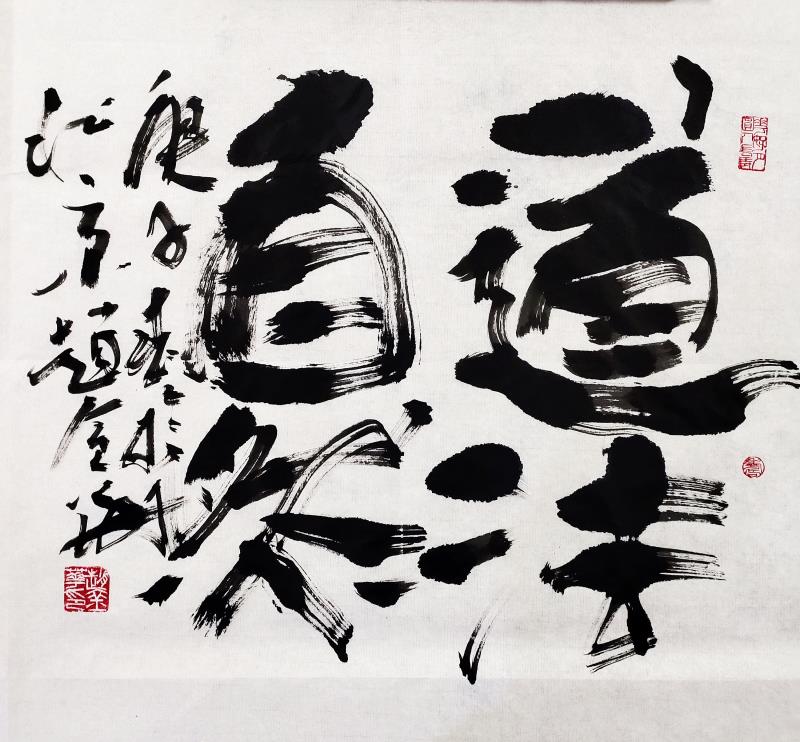 道法
自然
庚子春於
北京趙金華